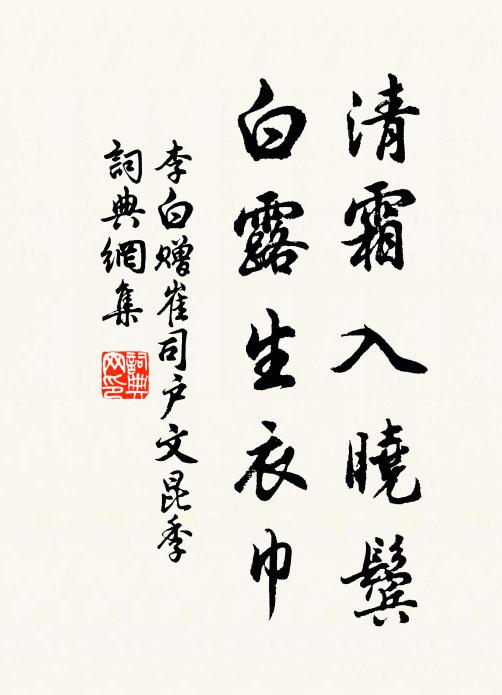 清霜入曉鬢
白露生衣巾
李白贈崔司户文昆季
詞典網集
詞典
网印